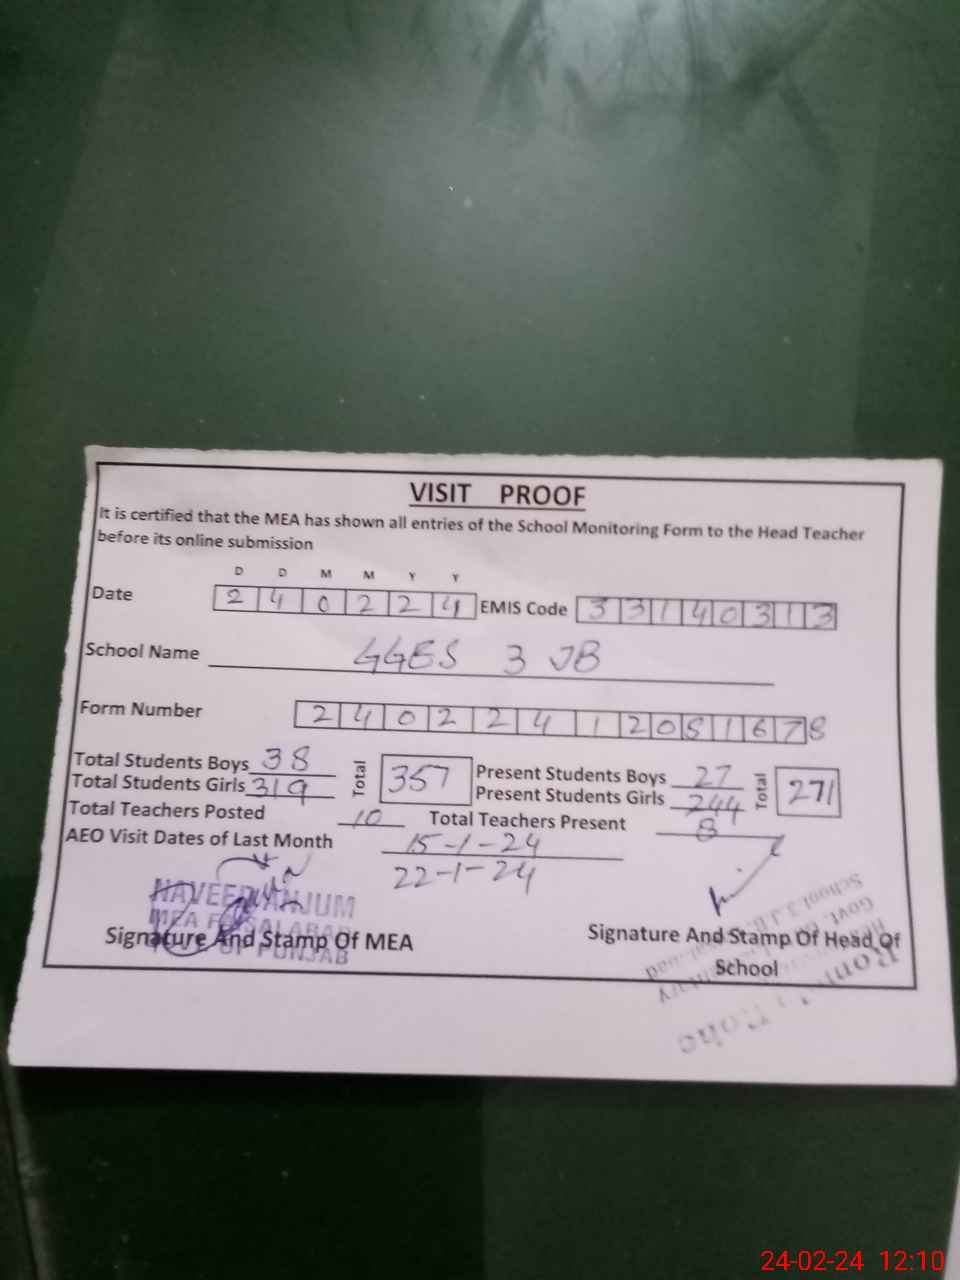 VISIT PROOF
It is certified that the MEA has shown all entries of the School Monitoring Form to the Head Teacher
before its online submission
D D M M Y Y
Date 240224 EMIS Code 33140313
School Name GGES 3 JB
Form Number 24022412051678
Total Students Boys 38 Total 357 Present Students Boys 27 Total 271
Total Students Girls 319 Present Students Girls 244
Total Teachers Posted 10 Total Teachers Present 8
AEO Visit Dates of Last Month 15-1-24
22-1-24
NAVEED ANJUM
MEA FAISALABAD
GOVT. OF PUNJAB
Signature And Stamp Of MEA
Signature And Stamp Of Head Of
School
Govt.
School 3 J.B.
24-02-24 12:10